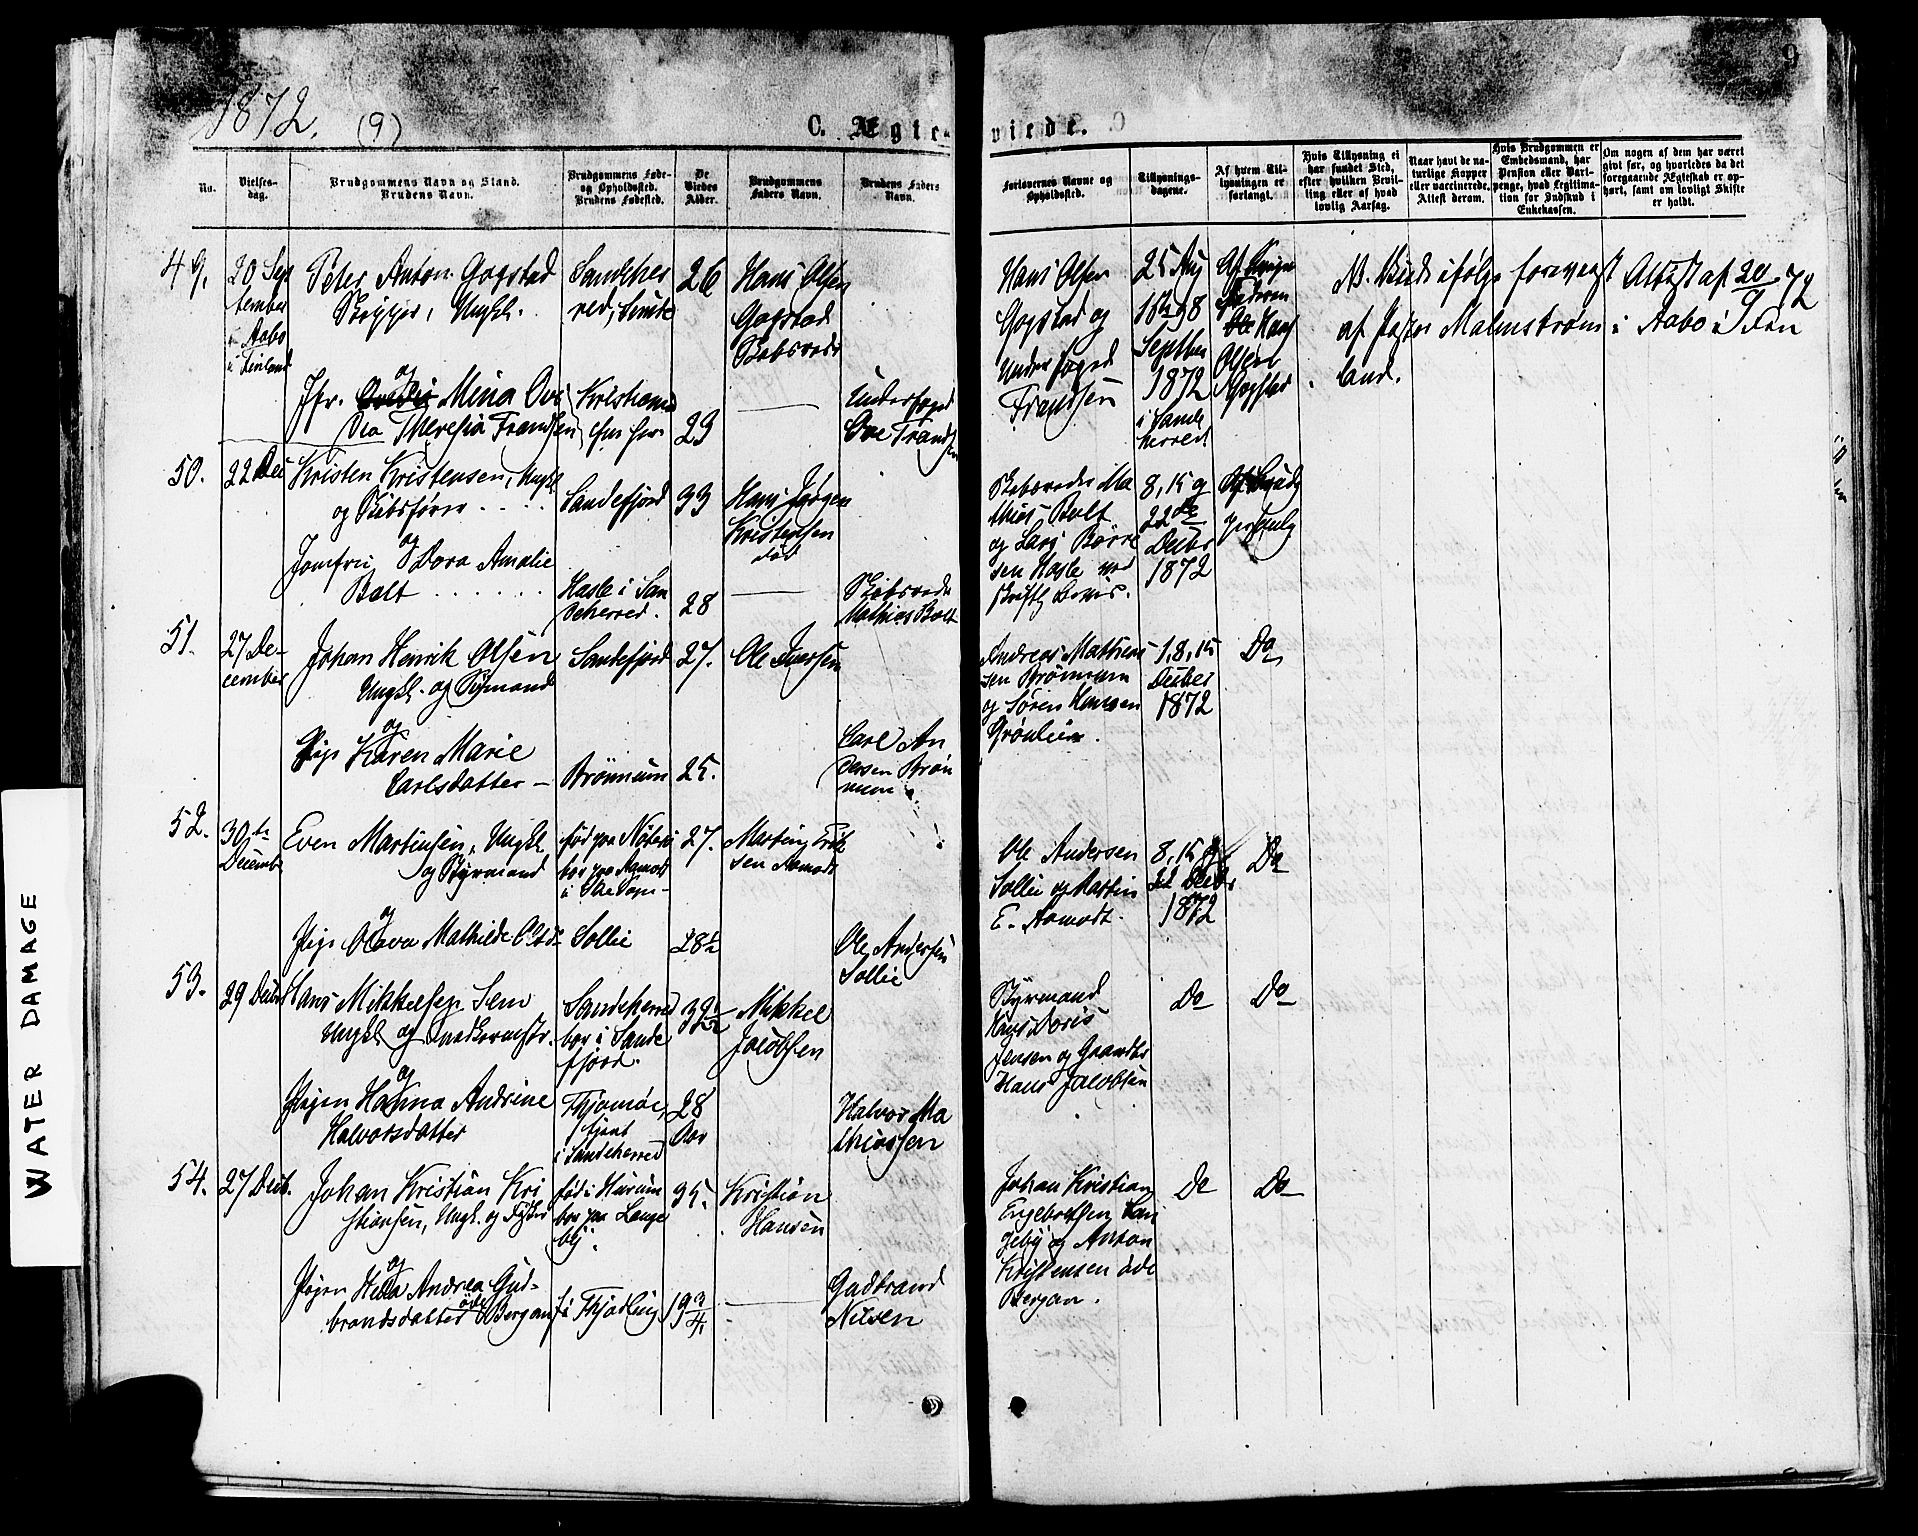 1872. (9)
C. Ægte-
viede.
9
No.
Vielses-
dag.
Brudgommens Navn og Stand.
Brudens Navn.
Brudgommens Føde-
og Opholdssted.
Brudens Fødested.
De
Viedes
Alder.
Brudgommens
Faders Navn.
Brudens Faders
Navn.
Forlovernes Navne og
Opholdssted.
Tillysnings-
dagene.
Af hvem Til-
lysningen er
forlangt.
Hvis Tillysning ei
har fundet Sted,
efter hvilken Bevil-
ling eller af hvad
lovlig Aarsag.
Naar havt de na-
turlige Kopper
eller vaccinerede.
Attest derom.
Hvis Brudgommen er
Embedsmand, har
Pension eller Vart-
penge, hvad Legitima-
tion for Indskud i
Enkekassen.
Om nogen af dem har været
givt før, og hvorledes da det
foregaaende Ægteskab er op-
hørt, samt om lovligt Skifte
er holdt.
49.
20 Sep
tember
i Aabo
i Finland
Peter Anton Gogstad
Skipper, Ungkl.
og
Jfr. Mina Ove
dia Theresia Frandsen
Sandeher
red,
26
23
Hans Olsen
Gogstad
Skibsreder
Underfoged
Ove Frands
en
Hans Olsen
Gogstad og
Underfoged
Frandsen
25 Aug
1ste og 8
Septbr
1872
i Sande
herred.
Olsen
Gogstad
N. Viede ifølge foreværist Attest af 20/9 72
af Pastor Malmstrøm i Aabo i Fin
land.
50.
22 Dec
Kristen Kristensen, Ungkl
og Skibsfører
og
Jomfru Dora Amalie
Bolt
Sandefjord
Hasle i San
deherred.
33
28
Hans Jørgen
Kristensen
død
Skibsreder
Mathias Bolt
Skibsreder Ma
thias Bolt
og Lars Børre
sen Hasle ved
skriftl Bevis.
8, 15 og
22de
Decbr
1872
Af Brudg
personlig
51.
27 De-
cember
Johan Henrik Olsen
Ungkl. og Sømand
og
Pige Karen Marie
Carlsdatter -
Sandefjord
Brønnum
27.
25.
Ole Iversen
Carl An
dersen Brøn
num
Andreas Mathias
sen Brønnum
og Søren Hansen
Grønlien.
1, 8, 15
Decber
1872
Do
52.
30te
Decembr
Even Martinsen, Ungkl
og Styrmand
og
Pige Olava Mathilde Olsd.
født paa Nøterø
bor paa Aamodt
i Sogn -
Sollie
27.
28½
Martin Erik
sen Aamodt
Ole Andersen
Sollie
Ole Andersen
Sollie og Martin
E. Aamodt.
8, 15 og
22 Decbr
1872
Do
53.
29 Decbr
Hans Mikkelsen Sem
Ungkl og
og
Pigen Halvina Andrine
Halvorsdatter
Sandeherred
bor i Sande
fjord.
Thjømøe,
tjent
i Sandeherred
32½
28
Aar
Mikkel
Jacobsen
Halvor Ma
thiassen
Styrmand
Hans Joris
Jensen og Gaardbr
Hans Jacobsen
Do
Do
54.
27 Decb.
Johan Kristian Kri
stiansen, Ungk. og Fisker
og
Pigen Helle Andrea Gud-
brandsdatter øde Bergan
født i Hurum
bor paa Lange
by.
f. i Thjødling
35.
19¾
Kristian
Hansen
Gudbrand
Nilsen
Johan Kristian
Engebretsen Lan
geby og Anton
Kristensen øde
Bergan.
Do
Do
WATER DAMAGE